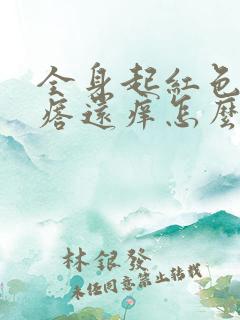 全身起紅色
痞還痒怎麼
林銀發
未經同意禁止轉載